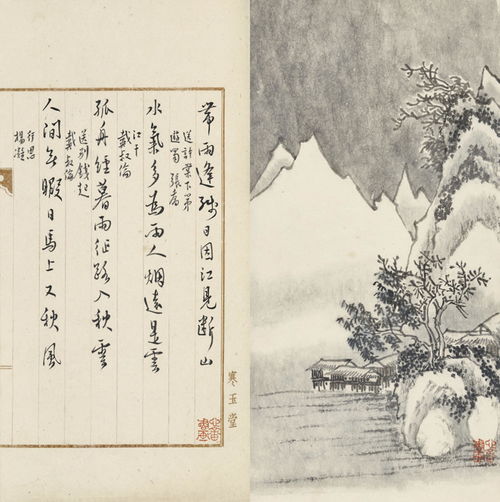 帶雨逢殘日因江見斷山
送許棠下第
遊蜀張喬
水氣多為雨人烟遠是雲
江干
戴叔倫
孤舟經暮雨征路入秋雲
送別錢起
戴叔倫
人間無暇日馬上又秋風
行思
楊凝
寒玉堂